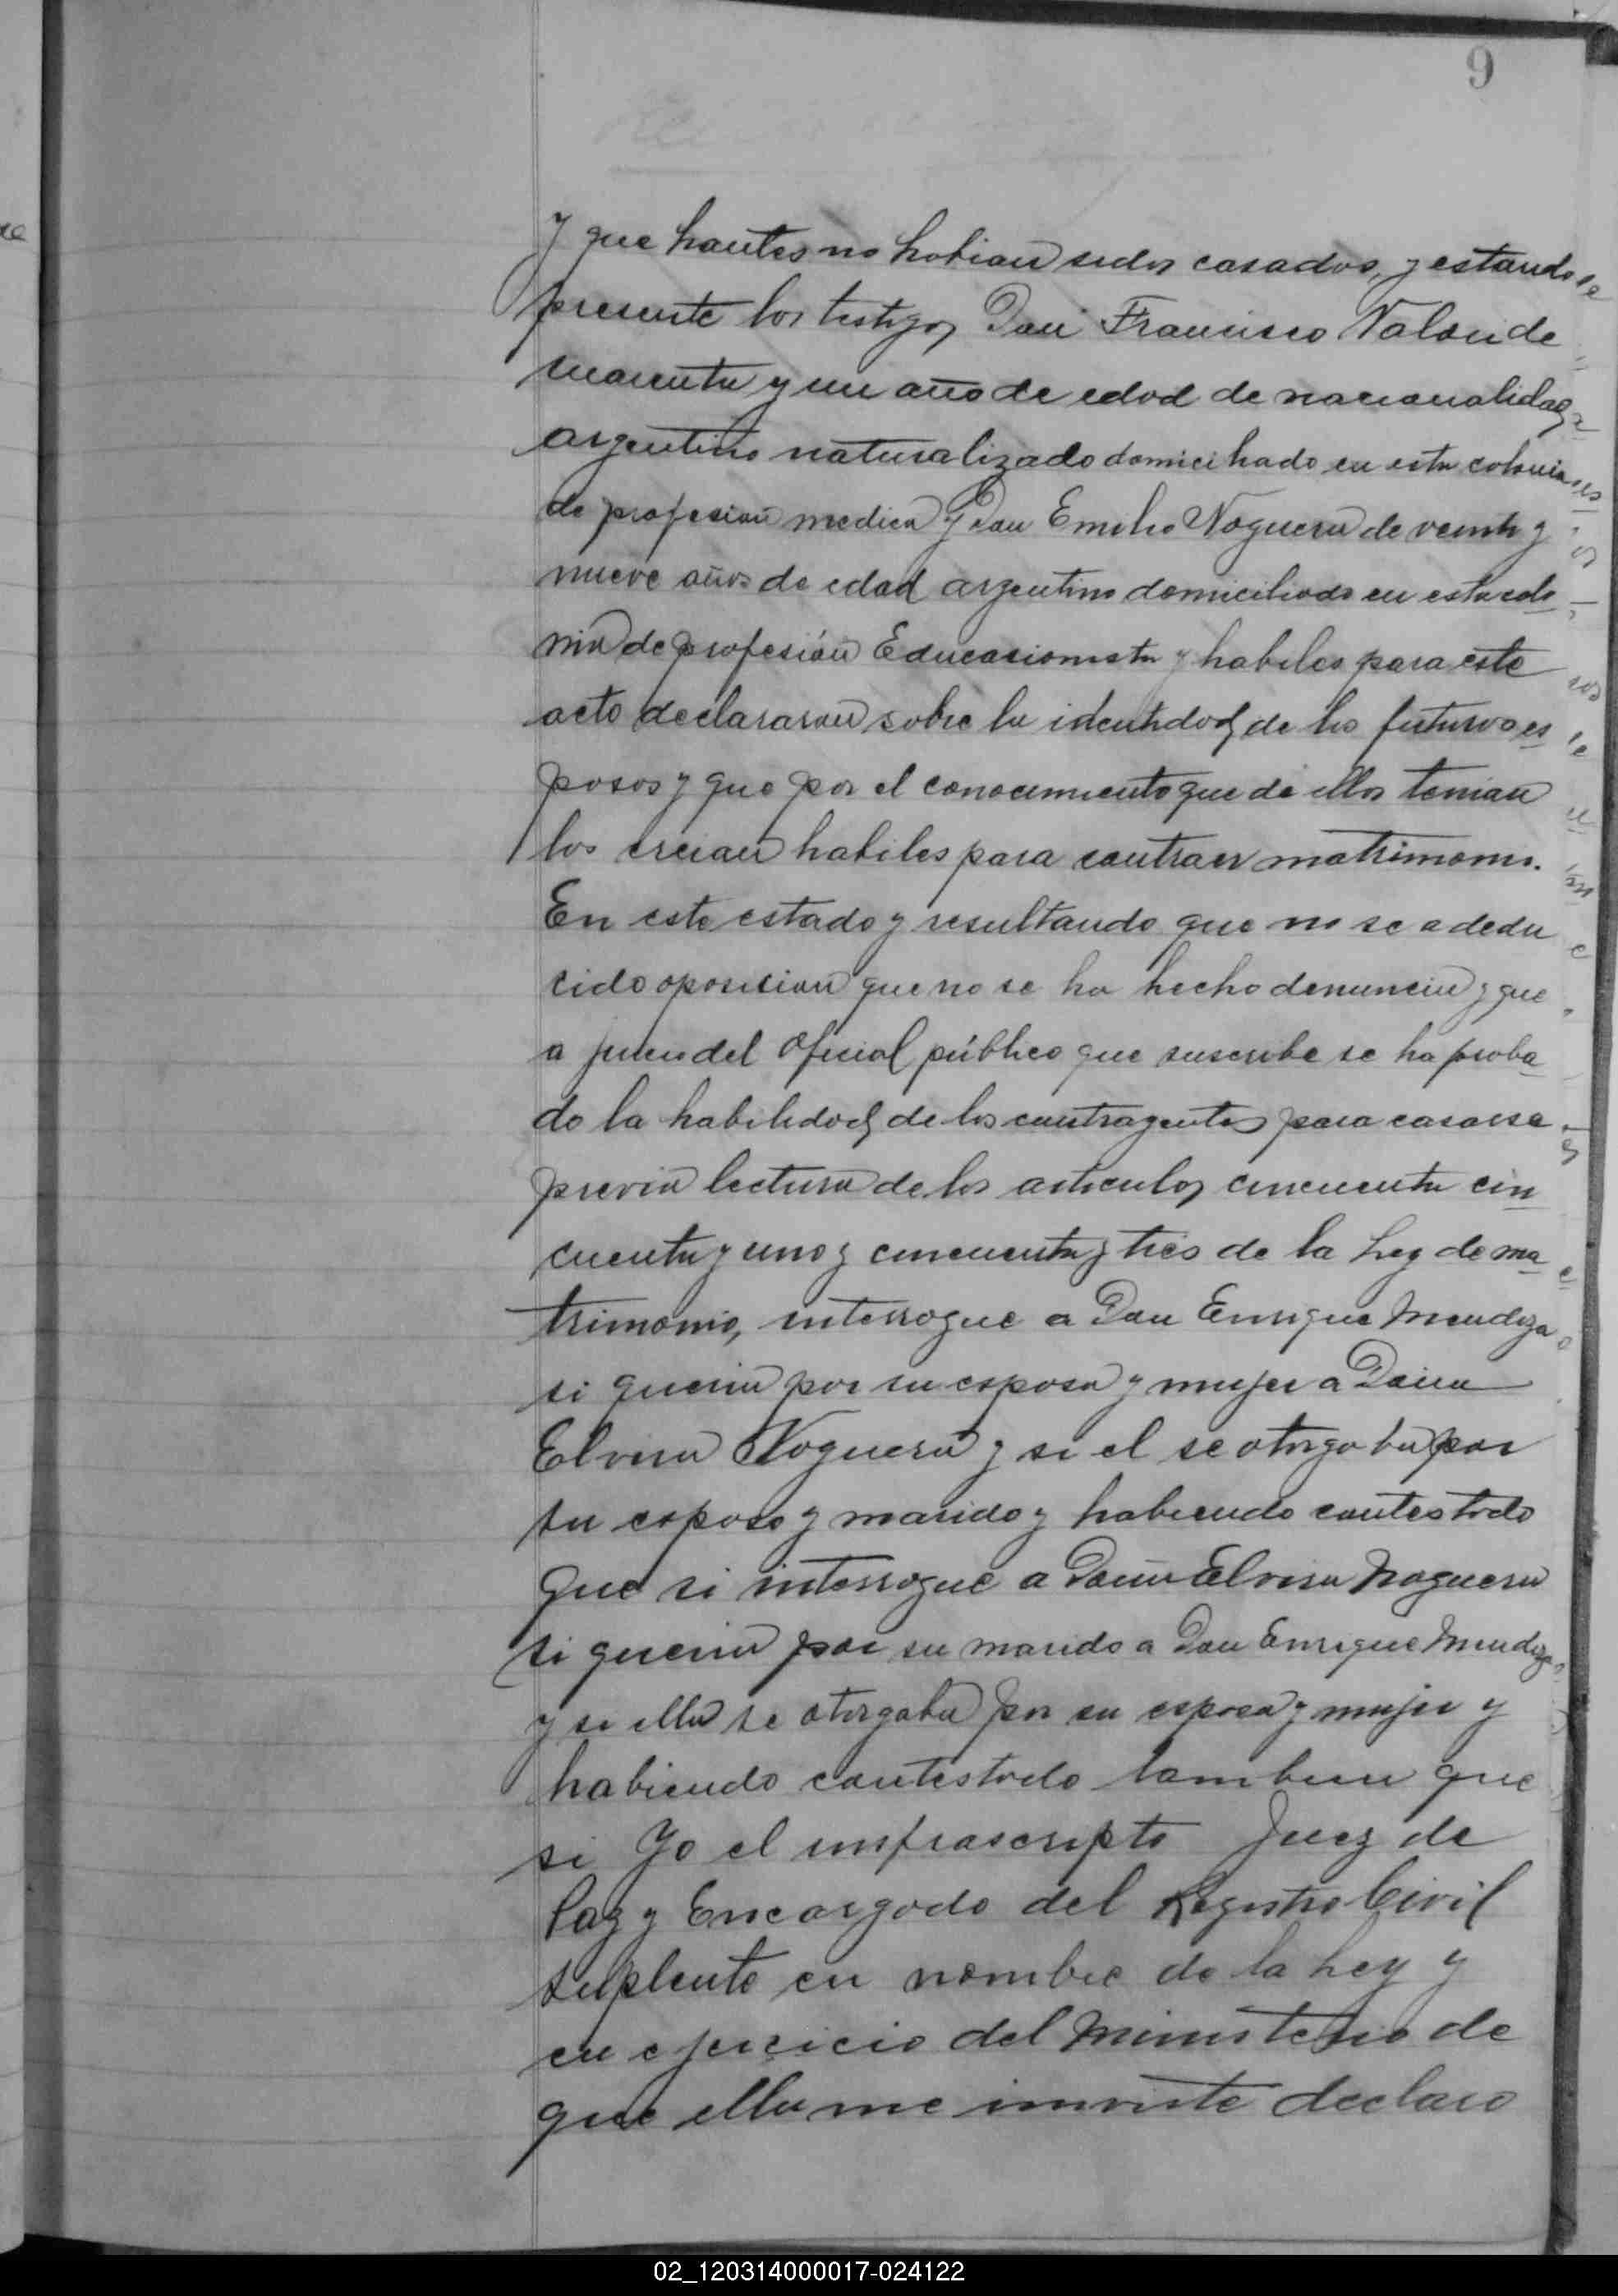 9
y que hantes no habian sidos casados, y estando
presente los testigos Don Francisco Nalon de
cuarenta y un año de edad de nacionalidad
argentino naturalizado domicihado en esta colonia
de profesion medica y don Emilio Noguera de veinti y
nueve años de edad argentino domiciliado en esta colo
nia de profesión Educasionista y habiles para este
acto declararon sobre la identidad de los futuros es
posos y que por el conocimiento que de ellos tenian
los creian habiles para contraer matrimonio.
En este estado y resultando que no se a dedu
cido oposicion que no se ha hecho denuncia y que
a juicio del Oficial público que suscribe se ha proba
do la habilidad de los contragentes para casarse
previa lectura de los articulos cincuenta cin
cuenta y uno y cincuenta y tres de la Ley de ma
trimonio, interrogue a Don Enrique Mendoza
si queria por su esposa y mujer a Doña
Elvira Noguera y si el se otorgaba por
su esposo y marido y habiendo contestado
que si interrogue a Doña Elvira Noguera
si queria por su marido a Don Enrique Mendoza
y si ella se otorgaba por su esposa y mujer y
habiendo contestado tambien que
si Yo el infrascripto Juez de
Paz y Encargado del Registro Civil
suplente en nombre de la Ley y
en ejercicio del Ministerio de
que ella me inviste declaro
02_120314000017-024122